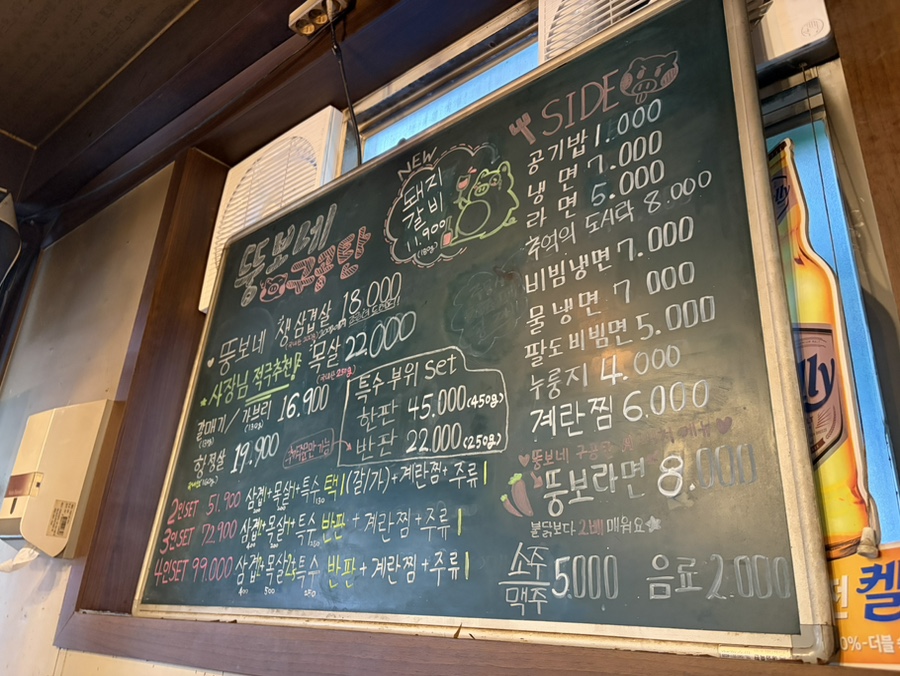 뚱보네
구공탄
NEW
돼지
갈비
11.900
(180g)
뚱보네 챙삼겹살 18.000
★사장님 적극추천!! 목살 22.000
갈매기/가브리 16.900
항정살 19.900
특수 부위 set
한판 45.000(450g)
반판 22.000(250g)
2인SET 51.900 삼겹1+목살1+특수 택1(갈/가)+계란찜+주류1
3인SET 72.900 삼겹1+목살1+특수 반판+계란찜+주류1
4인SET 99.000 삼겹+목살+특수 반판+계란찜+주류1
SIDE
공기밥 1.000
냉면 7.000
라면 5.000
추억의 도시락 8.000
비빔냉면 7.000
물냉면 7 000
팔도비빔면 5.000
누룽지 4.000
계란찜 6.000
뚱보네 구공탄
뚱보라면 8.000
불닭보다 2배 매워요
소주
맥주 5.000
음료 2.000
켈
0%-더블